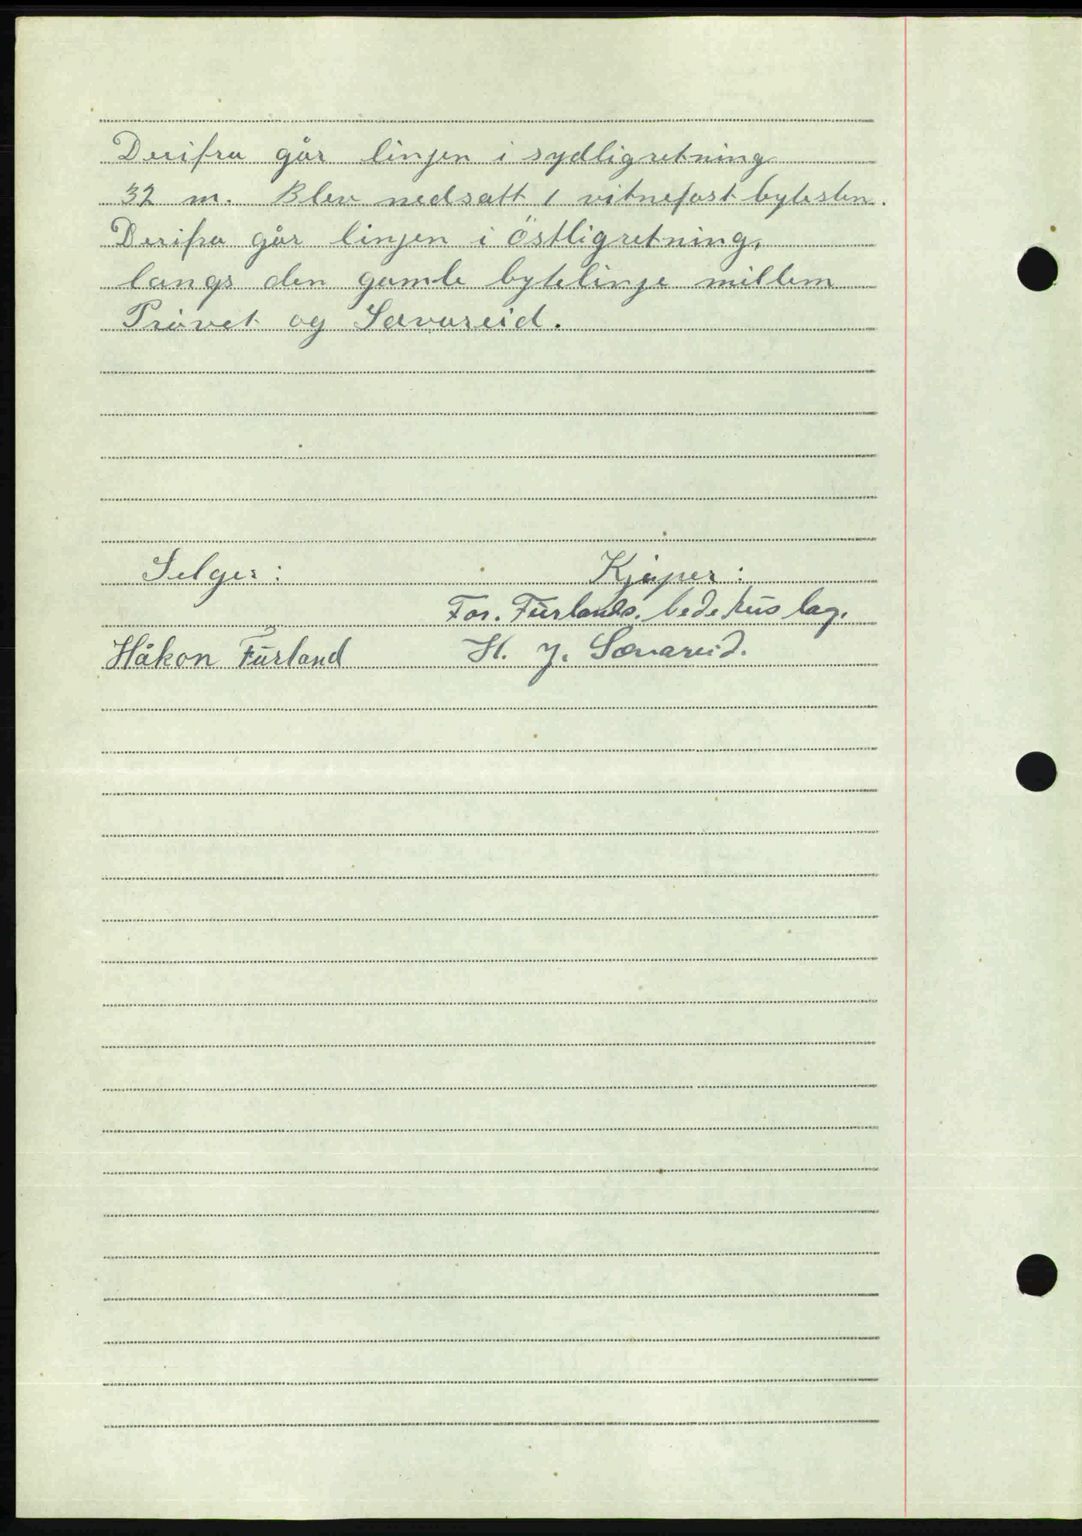 Derifra går linjen i sydligretning
32 m. Blev nedsatt 1 vitnefast bytesten.
Derifra går linjen i östligretning,
langs den gamle bytelinje millem
Prøvet og Sævareid.
Selger: Kjøper:
For. Fürlands. bedehus lag.
Håkon Fürland H. J. Sævareid.